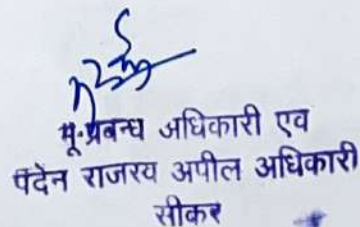 भू.प्रबन्ध अधिकारी एव
पदेन राजस्व अपील अधिकारी
सीकर